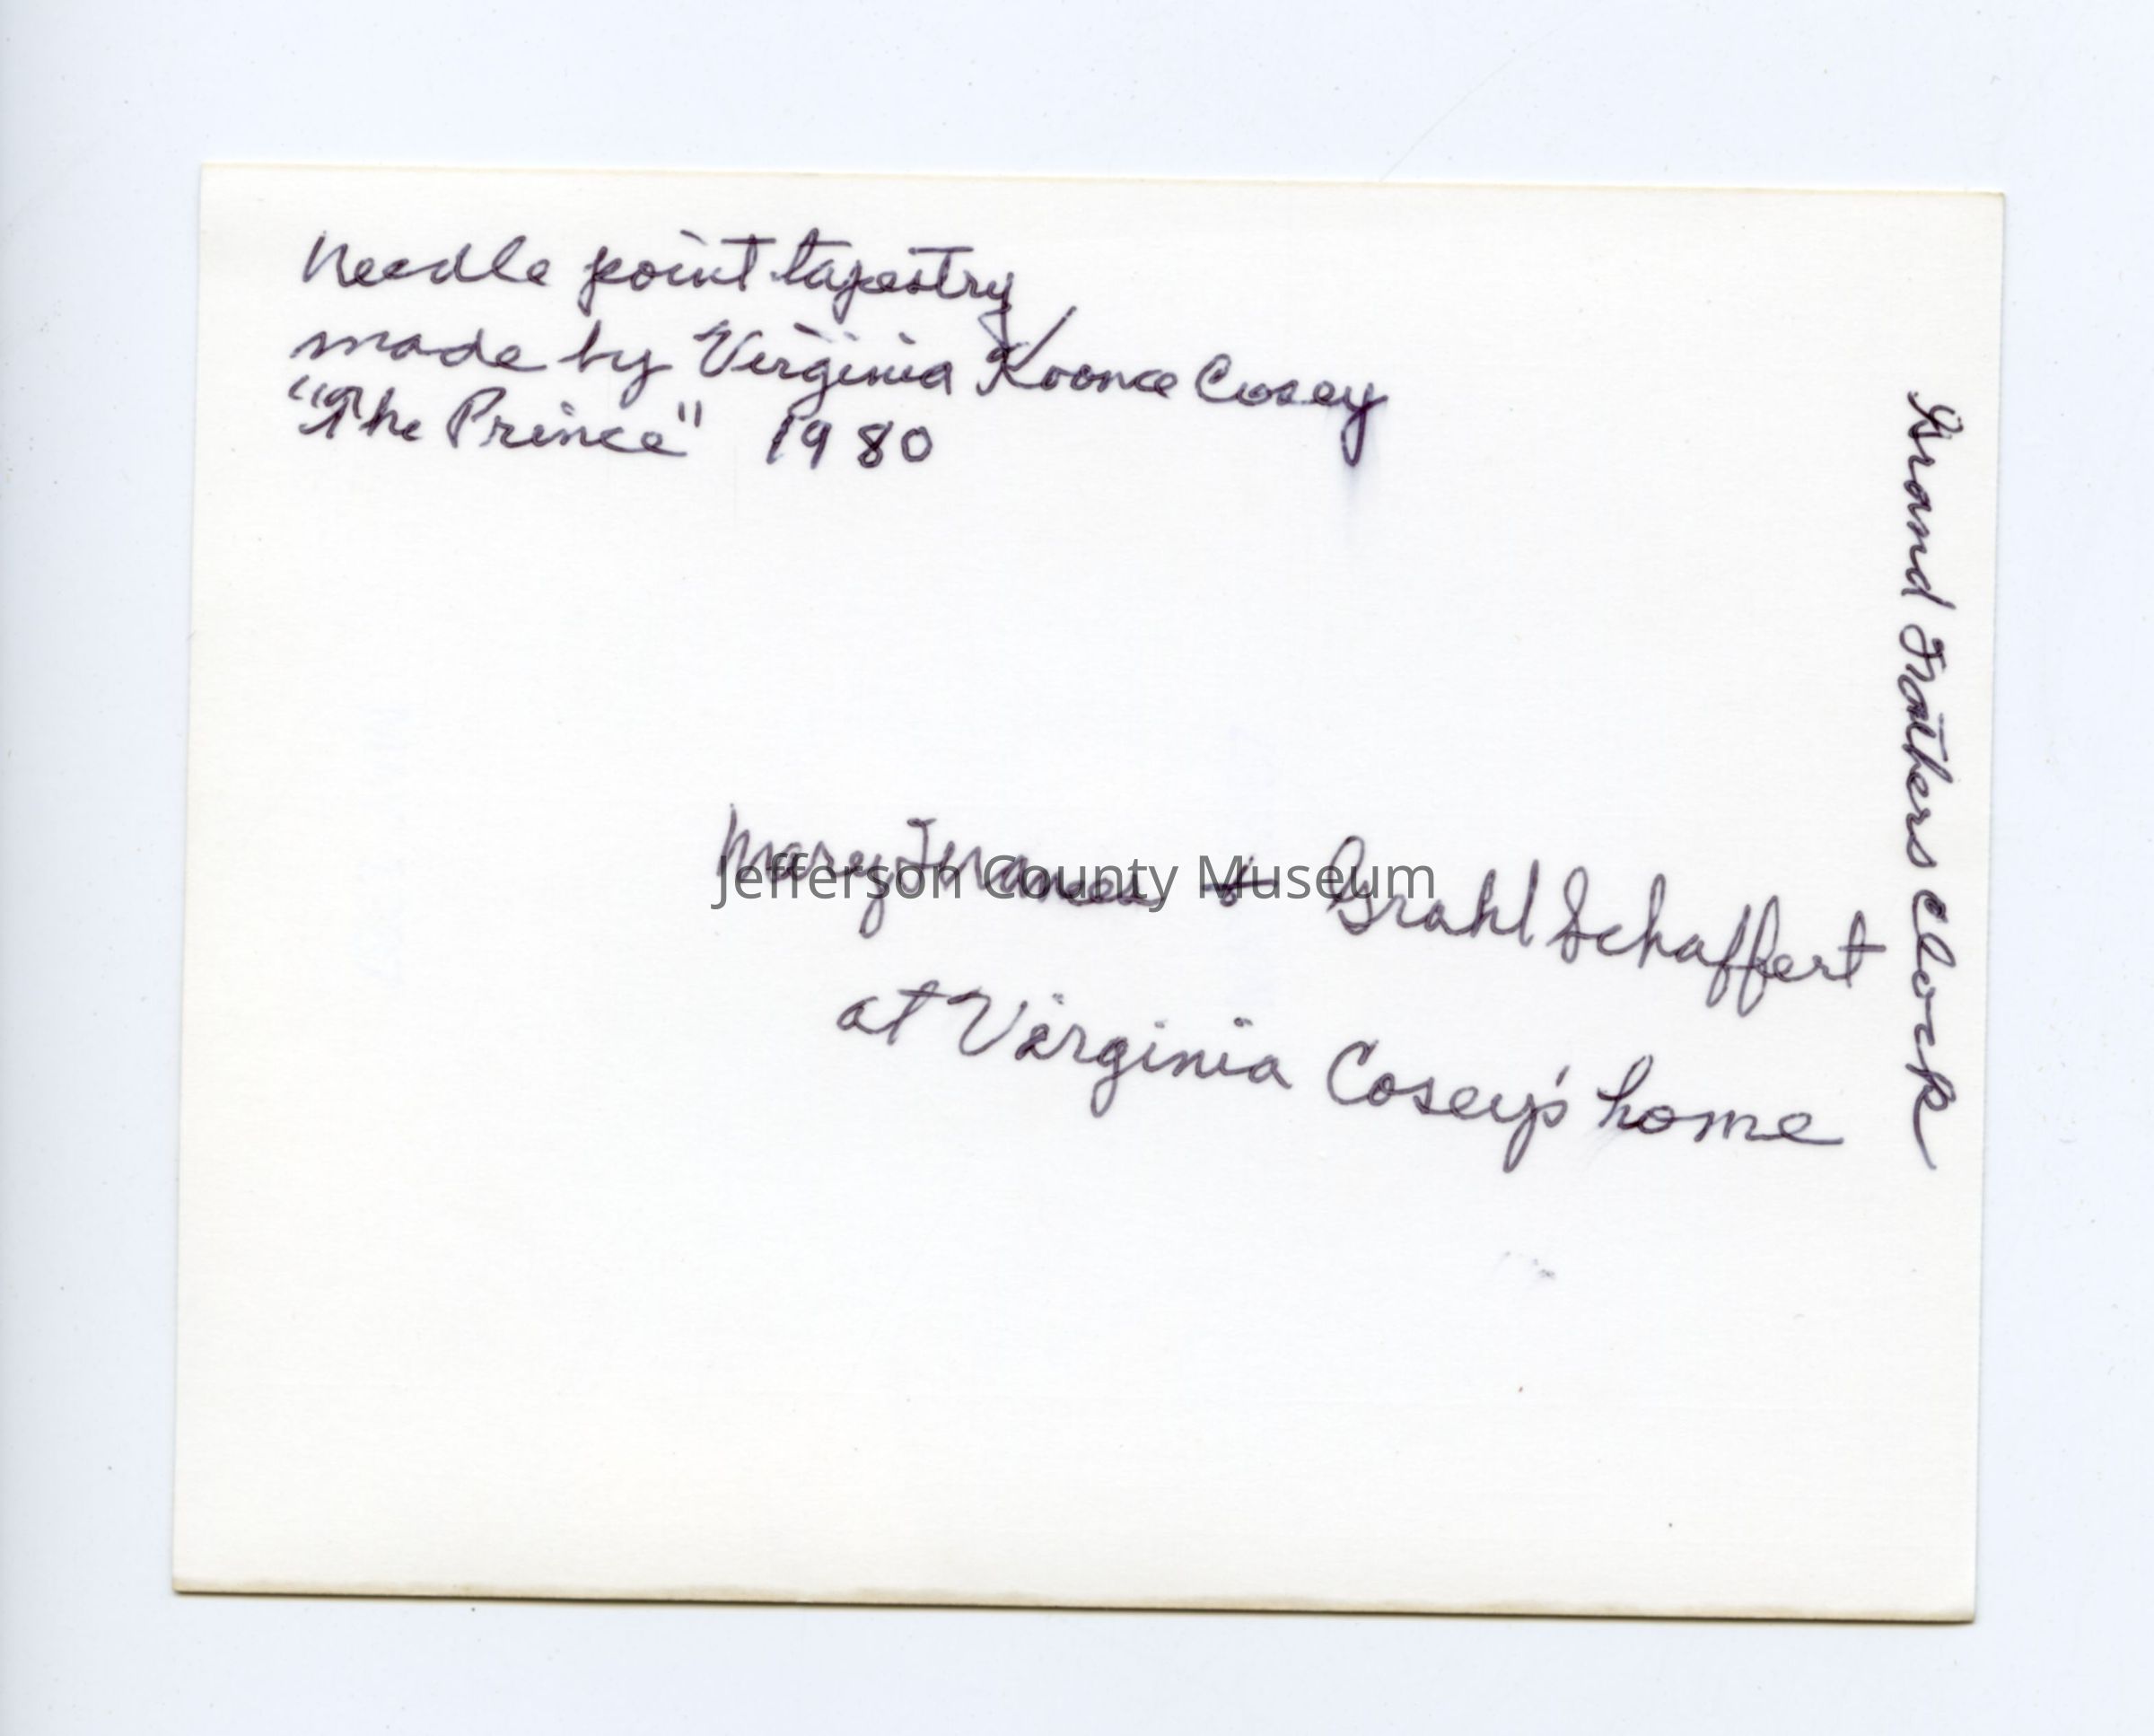 Needle point tapestry
made by Virginia Koonce Cosey
"The Prince" 1980
Mary Frances + Grahl Schaffert
at Virginia Cosey's home
Grand Fathers Clock
Jefferson County Museum